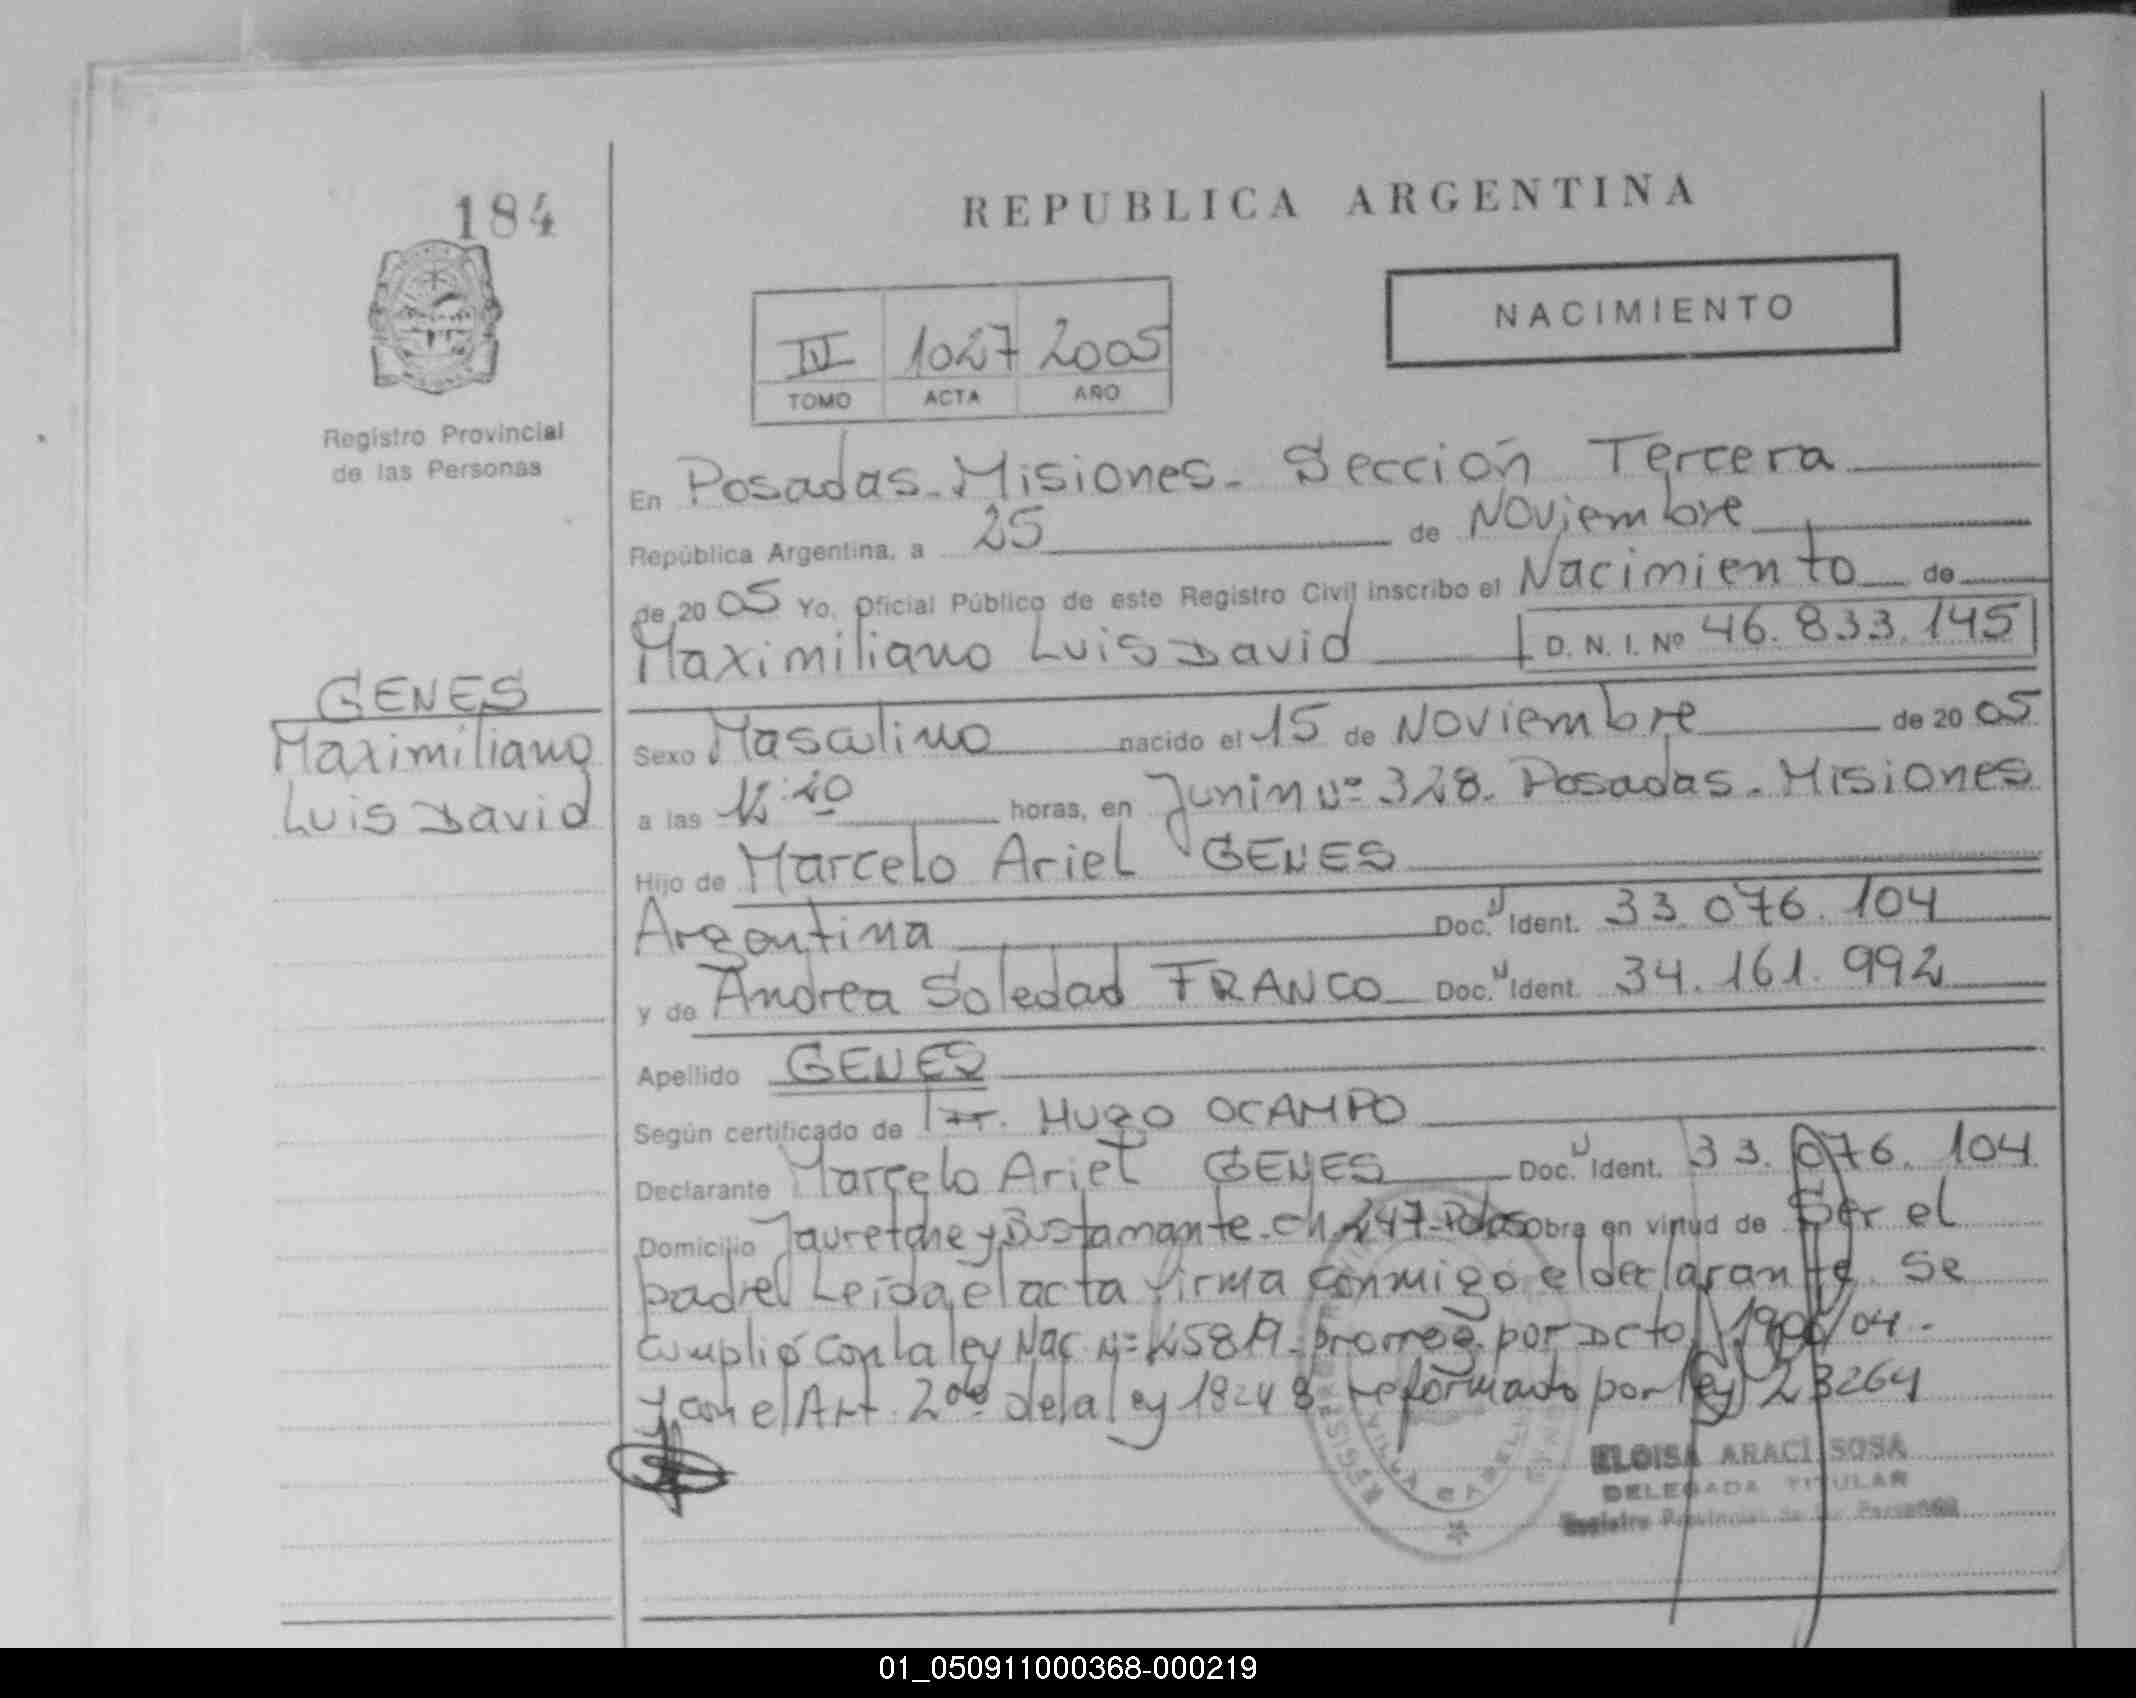 184
REPUBLICA ARGENTINA
NACIMIENTO
IV 1027 2005
TOMO ACTA AÑO
Registro Provincial
de las Personas
En Posadas-Misiones- Sección Tercera
República Argentina, a 25 de Noviembre
de 2005 Yo, Oficial Público de este Registro Civil inscribo el Nacimiento de
Maximiliano Luis David D. N. I. Nº 46.833.145
GENES
Maximiliano
Luis David
Sexo Masculino nacido el 15 de Noviembre de 2005
a las 12:40 horas, en Junin Nº 328. Posadas-Misiones
Hijo de Marcelo Ariel GENES
Argentina Doc. Ident. 33.076.104
y de Andrea Soledad FRANCO Doc. Ident. 34.161.992
Apellido GENES
Según certificado de Dr. HUGO OCAMPO
Declarante Marcelo Ariel GENES Doc. Ident. 33.076.104
Domicilio Jauretche y Bustamante-Ch. 247-Pdas obra en virtud de Ser el
padre Leída el acta firma conmigo el declarante. Se
cumplió con la ley Nac. Nº 25819- prorrog. por Dcto 1900/04-
y con el Art. 2do de la ley 18248 reformado por ley 23264
ELOISA ARACI SOSA
DELEGADA TITULAR
Registro Provincial de las Personas
01_050911000368-000219